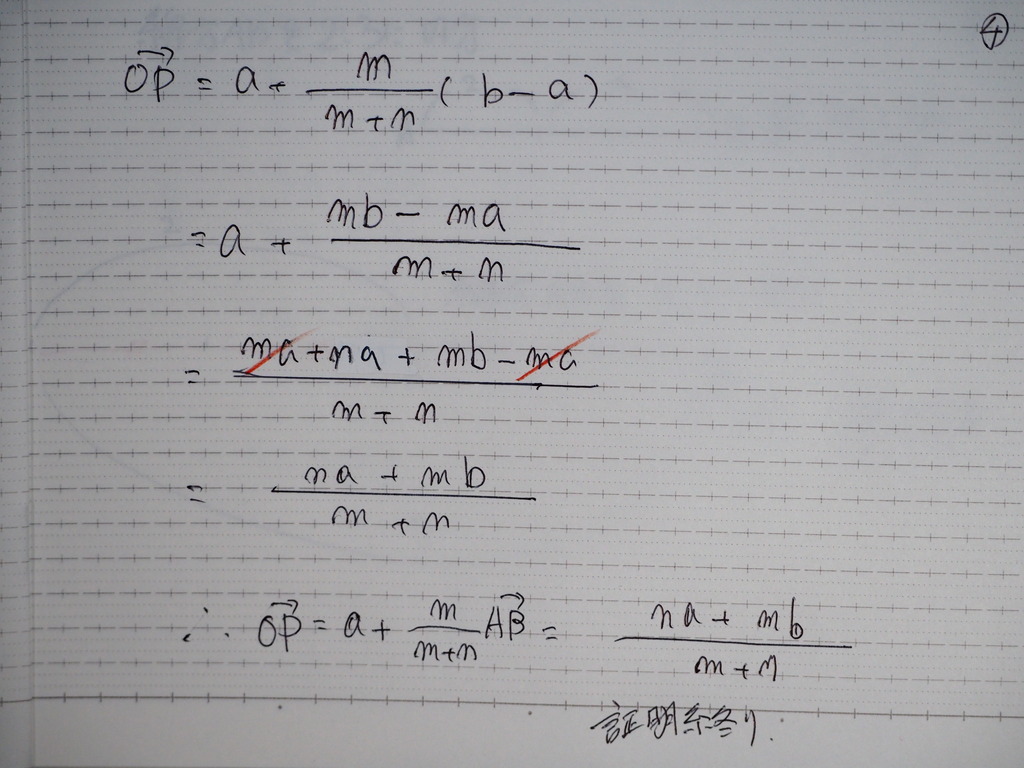 ④
→OP = a + m/(m+n) ( b - a )
= a + (mb - ma)/(m+n)
= (ma + na + mb - ma)/(m+n)
= (na + mb)/(m+n)
∴ →OP = a + m/(m+n) →AB = (na + mb)/(m+n)
証明終り.